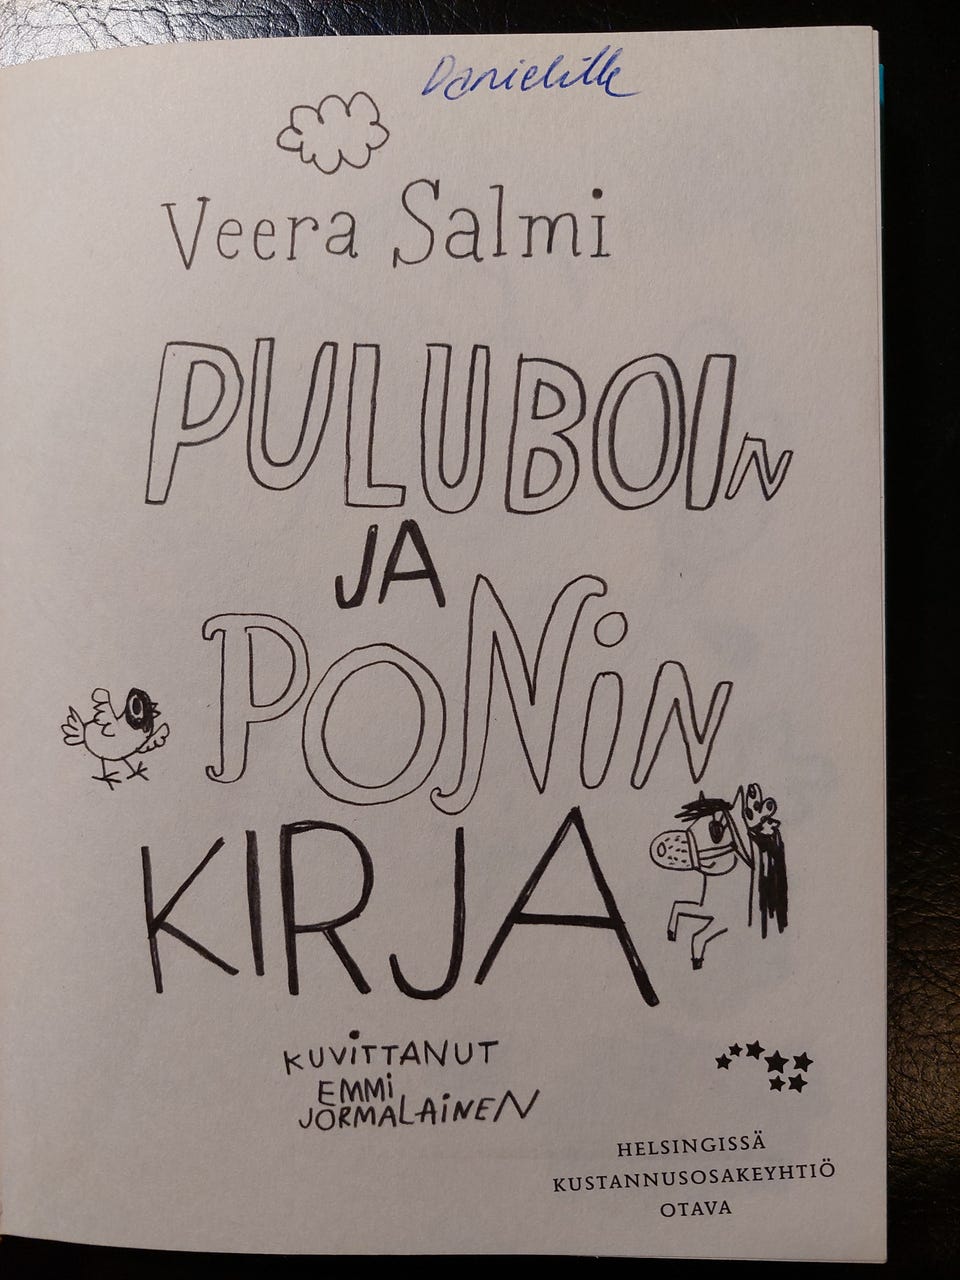 Danielille
Veera Salmi
PULUBOIN
JA
PONiN
KIRJA
KUViTTANUT
EMMi
JORMALAiNEN
HELSINGISSÄ
KUSTANNUSOSAKEYHTIÖ
OTAVA